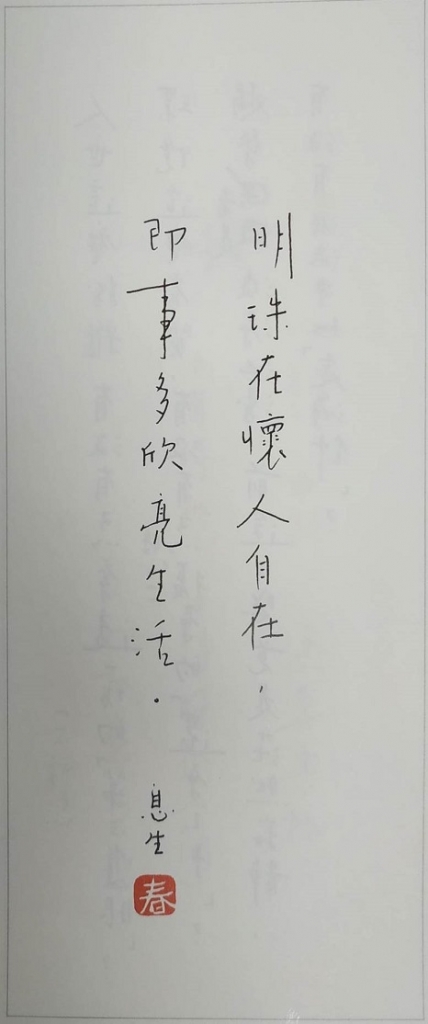 明珠在懷人自在，
即事多欣亮生活．
息生
春